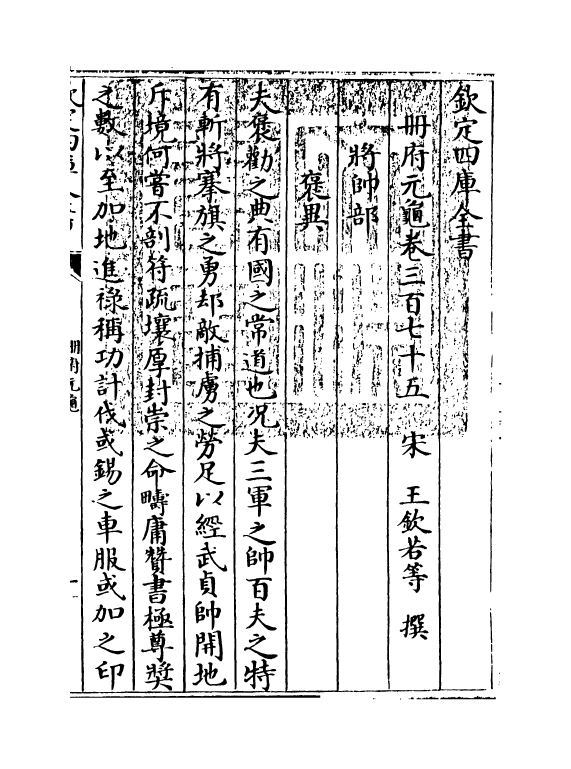 欽定四庫全書
冊府元龜卷三百七十五　宋　王欽若等　撰
將帥部
褒異
夫褒勸之典有國之常道也况夫三軍之帥百夫之特
有斬將搴旗之勇却敵捕虜之勞足以經武貞師開地
斥境何嘗不剖符疏壤厚封崇之命疇庸贊書極尊奬
之數以至加地進祿稱功計伐或錫之車服或加之印
冊府元龜
一